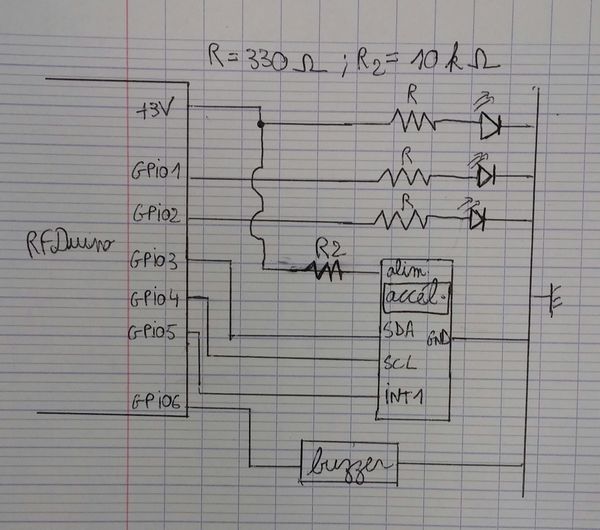 R = 330 Ω ; R2 = 10 k Ω
R
+3V
R
GPiO1
R
GPiO2
RFDuino
GPiO3
R2
alim
GPiO4
accél.
GPiO5
SDA
GND
SCL
iNT1
GPiO6
buzzer